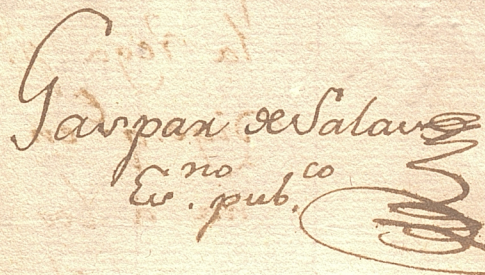 Gaspar de Salau
Es.no pub.co